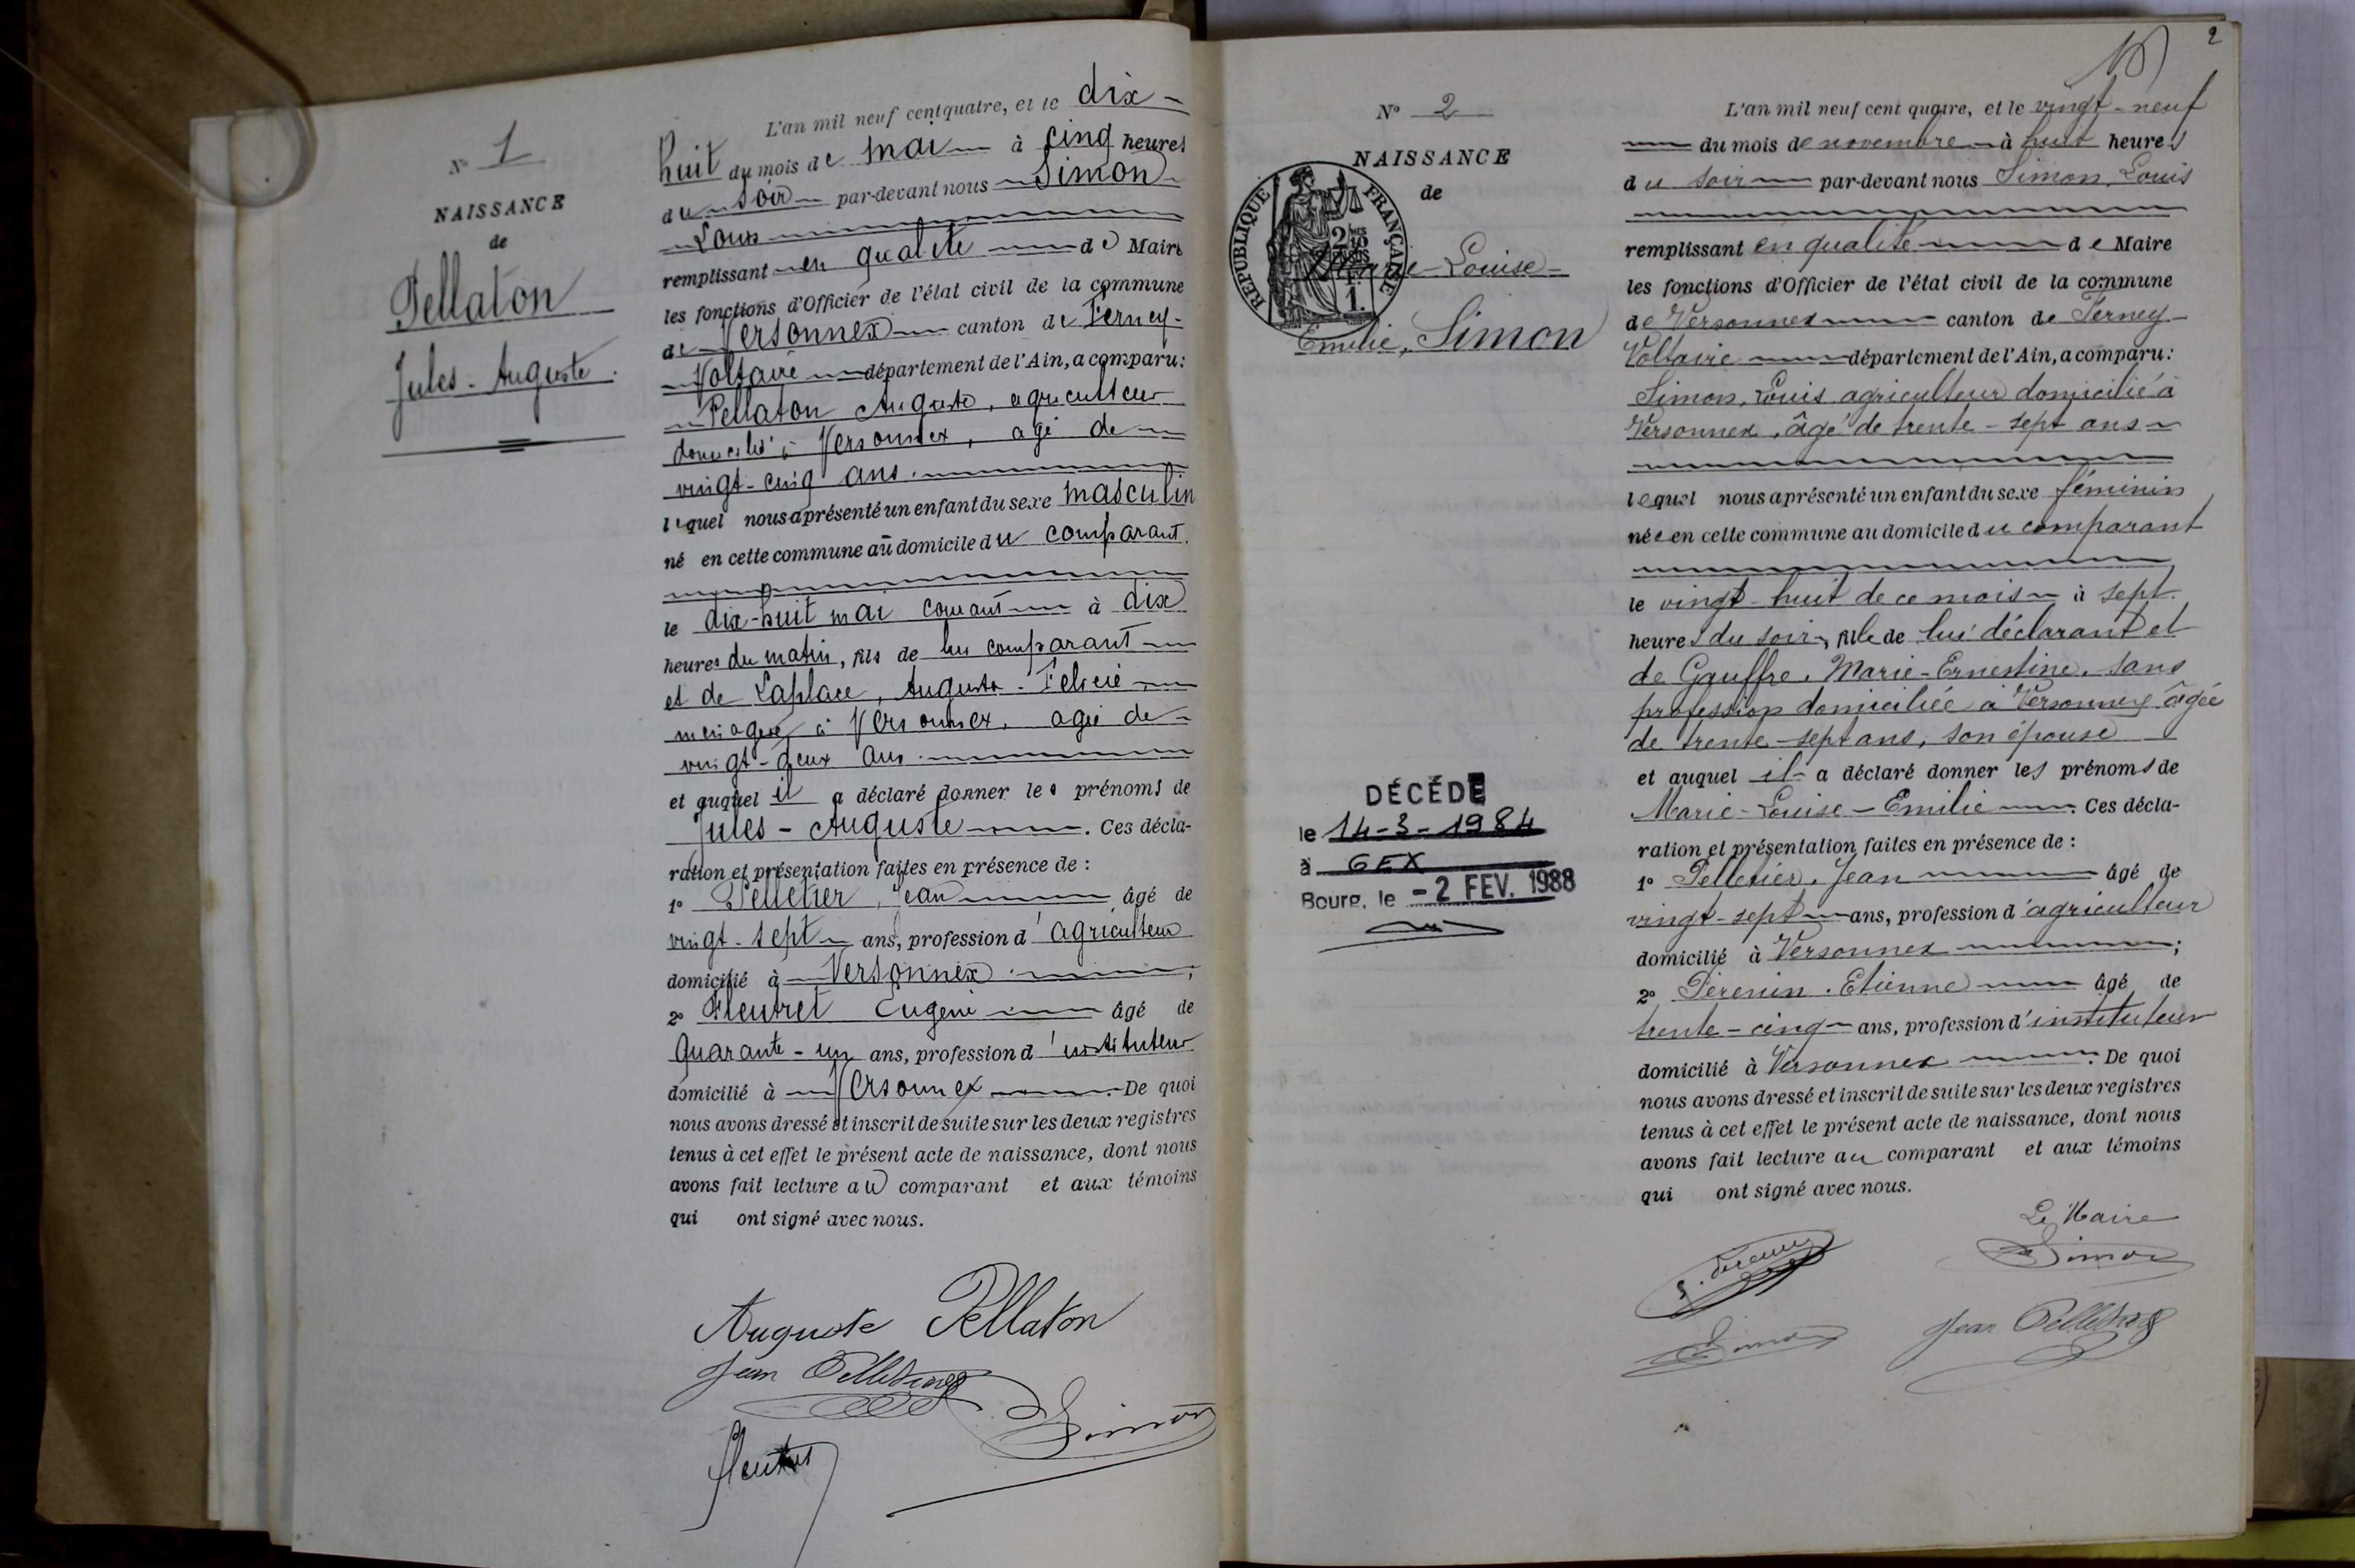 N° 1
NAISSANCE
de
Pellaton
Jules-Auguste.
L'an mil neuf cent quatre, et le dix-
huit du mois de mai à cinq heures
du soir par-devant nous Simon
Louis
remplissant en qualité de Maire
les fonctions d'Officier de l'état civil de la commune
de Versonnex canton de Ferney-
Voltaire département de l'Ain, a comparu:
Pellaton Auguste, agriculteur
domicilié à Versonnex, agé de
vingt-cinq ans.
lequel nous a présenté un enfant du sexe masculin
né en cette commune au domicile du comparant.
le dix-huit mai courant à dix
heures du matin, fils de lui comparant
et de Laplace, Augusta-Félicie
ménagère à Versonnex, agée de
vingt-deux ans.
et auquel il a déclaré donner les prénoms de
Jules-Auguste. Ces décla-
ration et présentation faites en présence de :
1° Pelletier, Jean âgé de
vingt-sept ans, profession d'agriculteur
domicilié à Versonnex;
2° Fleutret Eugène âgé de
quarante-un ans, profession d'instituteur
domicilié à Versonnex. De quoi
nous avons dressé et inscrit de suite sur les deux registres
tenus à cet effet le présent acte de naissance, dont nous
avons fait lecture au comparant et aux témoins
qui ont signé avec nous.
Auguste Pellaton
Jean Pelletier
Simon
2
N° 2
NAISSANCE
de
RÉPUBLIQUE FRANÇAISE
Marie-Louise-
Emilie, Simon
DÉCÉDÉ
le 14-3-1984
à GEX
Bourg, le -2 FEV. 1988
L'an mil neuf cent quatre, et le vingt-neuf
du mois de novembre à huit heures
du soir par-devant nous Simon, Louis
remplissant en qualité de Maire
les fonctions d'Officier de l'état civil de la commune
de Versonnex canton de Ferney-
Voltaire département de l'Ain, a comparu:
Simon, Louis agriculteur domicilié à
Versonnex, âgé de trente-sept ans
lequel nous a présenté un enfant du sexe féminin
née en cette commune au domicile du comparant
le vingt-huit de ce mois à sept
heures du soir, fille de lui déclarant et
de Gauffre, Marie-Ernestine, sans
profession domiciliée à Versonnex âgée
de trente-sept ans, son épouse
et auquel il a déclaré donner les prénoms de
Marie-Louise-Emilie. Ces décla-
ration et présentation faites en présence de :
1° Pelletier, Jean âgé de
vingt-sept ans, profession d'agriculteur
domicilié à Versonnex;
2° Perenin. Etienne âgé de
trente-cinq ans, profession d'instituteur
domicilié à Versonnex. De quoi
nous avons dressé et inscrit de suite sur les deux registres
tenus à cet effet le présent acte de naissance, dont nous
avons fait lecture au comparant et aux témoins
qui ont signé avec nous.
Le Maire
Simon
Simon
Jean Pelletier